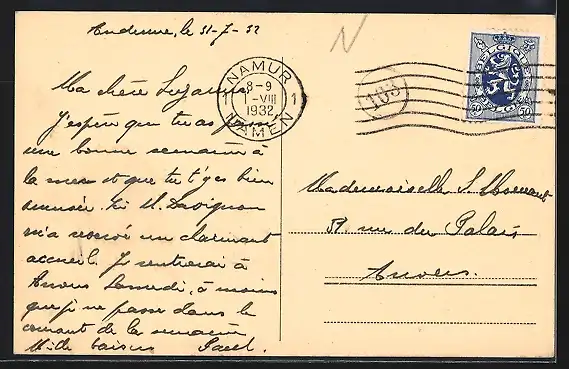 Andenne, le 31-7-32
Ma chère Suzanne
J'espère que tu as passé
une bonne semaine à
la mer et que tu t'y es bien
amusée. Ici M. Davignon
m'a réservé un charmant
accueil. Je rentrerai à
Anvers Samedi, à moins
que je ne passe dans le
courant de la semaine
Mille baisers Paul.
NAMUR
8-9
1 1-VIII 1
1932
NAMEN
103
BELGIQUE
BELGIE
50 50
Mademoiselle S.
51 rue du Palais
Anvers.
N